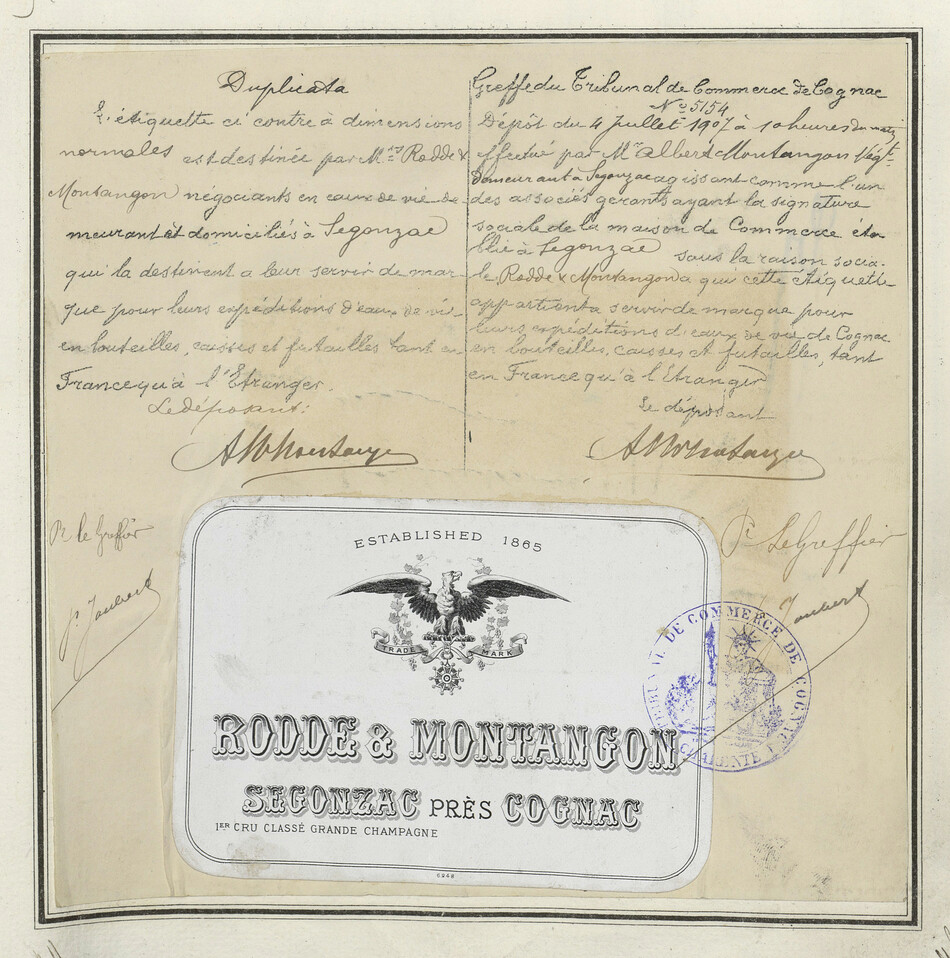 Duplicata
L'étiquette ci contre à dimensions
normales est destinée par M.rs Rodde &
Montangon négociants en eaux de vie de-
meurant et domiciliés à Segonzac
qui la destinent a leur servir de mar-
que pour leurs expéditions d'eaux de vie
en bouteilles, caisses et futailles tant en
France qu'à l'Etranger.
Le déposant:
Greffe du Tribunal de Commerce de Cognac
No 5154
Dépôt du 4 Juillet 1907 à 10 heures du matin
effectué par Mr Albert Montangon Négt.
demeurant à Segonzac agissant comme l'un
des associés gerants ayant la signature
sociale de la maison de Commerce éta
blie à Segonzac sous la raison socia-
le Rodde & Montangon a qui cette étiquette
appartient a servir de marque pour
leurs expéditions d'eaux de vie de Cognac
en bouteilles, caisses et futailles, tant
en France qu'à l'Etranger
Le déposant
Pr le Greffier
Joubert
Pr Le Greffier
Joubert
ESTABLISHED 1865
TRADE MARK
RODDE & MONTANGON
SEGONZAC PRÈS COGNAC
1ER CRU CLASSÉ GRANDE CHAMPAGNE
6248
TRIBUNAL DE COMMERCE DE COGNAC
CHARENTE